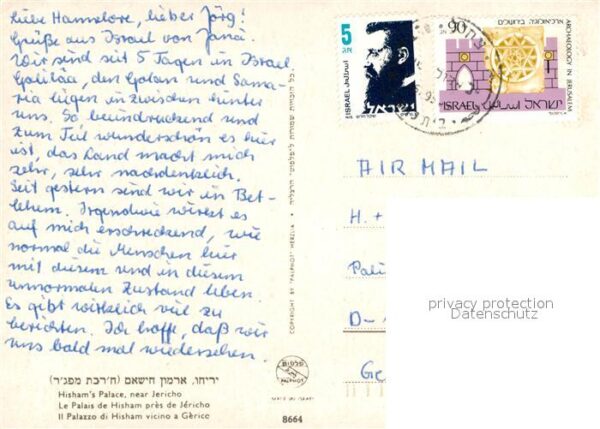 Liebe Hannelore, lieber Jörg!
Grüße aus Israel von Jana.
Wir sind seit 5 Tagen in Israel.
Galiläa, den Golan und Sama-
ria liegen inzwischen hinter
uns. So beeindruckend und
zum Teil wunderschön es hier
ist, das Land macht mich
sehr, sehr nachdenklich.
Seit gestern sind wir in Bet-
lehem. Irgendwie wirkt es
auf mich erschreckend, wie
normal die Menschen hier
mit diesem und in diesem
unnormalen Zustand leben.
Es gibt wirklich viel zu
berichten. Ich hoffe, daß wir
uns bald mal wiedersehen
יריחו, ארמון הישאם (ח'רבת מפג'ר)
Hisham's Palace, near Jericho
Le Palais de Hisham près de Jéricho
Il Palazzo di Hisham vicino a Gèrico
COPYRIGHT BY "PALPHOT" HERZLIA
כל הזכויות שמורות ל"פלפוט" הרצליה
פלפוט
PALPHOT
8664
5
אג
ISRAEL اسرائيل
ישראל
90
אג
ארכיאולוגיה בירושלים
ARCHAEOLOGY IN JERUSALEM
ISRAEL اسرائيل ישראל
AIR MAIL
H. +
D-
privacy protection
Datenschutz